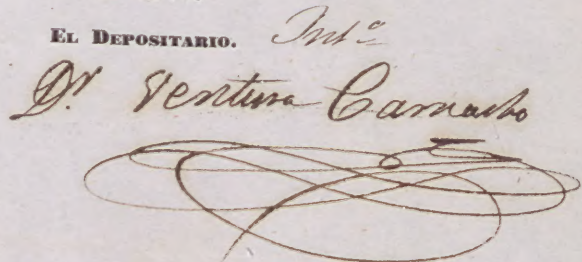 EL DEPOSITARIO. Intº
Dr Ventura Camacho